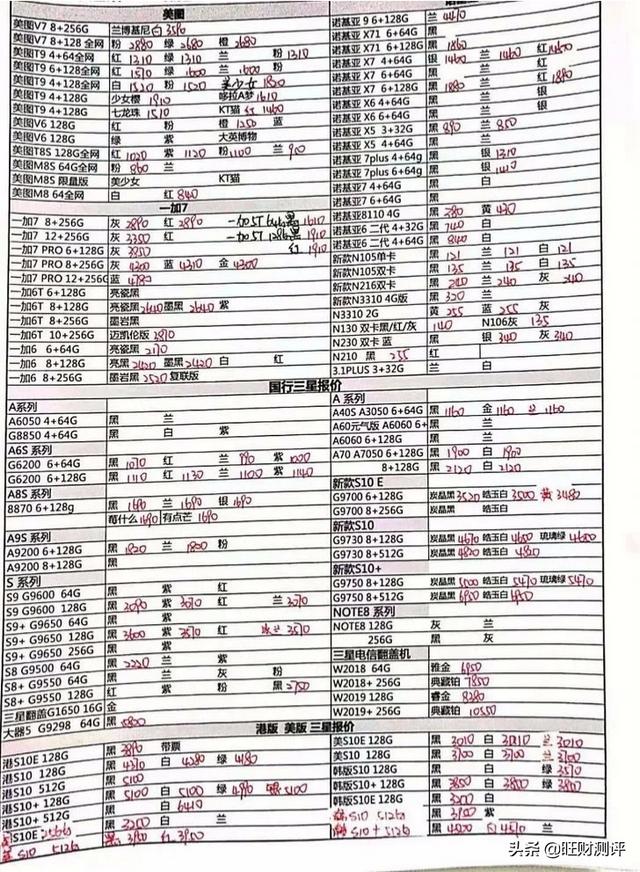 美图
美图V7 8+256G 兰博基尼白3580
美图V7 8+128 全网 粉 2880 绿 2680 橙 2680
美图T9 4+64G全网 红 1310 绿 1310 兰 粉 1310
美图T9 6+128全网 红 1510 绿 1600 兰 1600 粉
美图T9 4+128全网 白 1520 粉 1520 美少女 1800
美图T9 4+128G 少女樱 1910 哆拉A梦 1610
美图T9 4+128G 七龙珠 1510 KT猫 红 1460
美图V6 128G 红 粉 橙 1250 蓝
美图V6 128G 绿 紫 大英博物
美图T8S 128G全网 红 1020 紫 1120 粉 1100 兰 900
美图M8S 64G全网 粉 860 兰
美图M8S 限量版 美少女 KT猫
美图M8 64全网 白 红 840
一加7
一加7 8+256G 灰 2890 红 2890 一加5T 64G黑 1610
一加7 12+256G 灰 3350 红 一加5T 128G黑 1910
一加7 PRO 6+128G 灰 3850 红 1910
一加7 PRO 8+256G 灰 4300 蓝 4310 金 4300
一加7 PRO 12+256G 蓝 4780
一加6T 6+128G 亮瓷黑
一加6T 8+128G 亮瓷黑 2640 墨黑 2640 紫
一加6T 8+256G 墨岩黑
一加6T 10+256G 迈凯伦版 2870
一加6 6+64G 亮瓷黑 2170
一加6 8+128G 亮黑 2420 墨黑 2420 白 红
一加6 8+256G 墨岩黑 2520 复联版
诺基亚 9 6+128G 兰 4470
诺基亚 X71 6+64G 黑
诺基亚 X71 6+128G 黑 1860
诺基亚 X7 4+64G 银 1460 兰 1460 红 1450
诺基亚 X7 6+64G 黑 兰 红 1880
诺基亚 X7 6+128G 黑 1880 兰 银
诺基亚 X6 4+64G 黑 兰 银
诺基亚 X6 6+64G 黑 兰
诺基亚 X5 3+32G 黑 890 兰 850
诺基亚 X5 4+64G 黑 兰
诺基亚 7plus 4+64g 黑 银 1310
诺基亚 7plus 6+64g 黑 银 1410
诺基亚7 4+64G 黑 白
诺基亚7 6+64G 黑
诺基亚8110 4G 黑 280 黄 430
诺基亚6 二代 4+32G 黑 740 白
诺基亚6 二代 4+64G 黑 840 白
新款N105单卡 黑 121 兰 121 白 121
新款N105双卡 黑 135 兰 135 白 135
新款N216双卡 黑 240 兰 240 灰 240
新款N3310 4G版 黑 320 兰
N3310 2G 黄 255 蓝 255 灰
N130 双卡黑/红/灰 140 N106灰 135
N230 双卡 蓝 黑 银 340 灰 340
N210 黑 255 红
3.1PLUS 3+32G 兰 白
国行三星报价
A系列
A6050 4+64G 黑 兰
G8850 4+64G 黑 白 紫
A6S 系列
G6200 6+64G 黑 1070 红 兰 990 紫 1000
G6200 6+128G 黑 1110 红 1130 兰 1100 紫 1140
A8S 系列
8870 6+128g 黑 1690 兰 1690 银 1690
莓什么 1690 有点芒 1690
A9S 系列
A9200 6+128G 黑 1820 兰 1800 粉
A9200 8+128G 黑
S 系列
S9 G9600 64G 黑 紫 红
S9 G9600 128G 黑 3090 紫 3070 兰 3070
S9+ G9650 64G 黑 紫
S9+ G9650 128G 黑 3600 紫 3570 红 兰 3570
S9+ G9650 256G 黑 紫
S8 G9500 64G 黑 2220 兰
S8+ G9550 64G 黑 兰 灰 粉
S8+ G9550 128G 红 紫 粉 黑 2750
三星翻盖G1650 16G 金
大器5 G9298 64G 黑 5800
A 系列
A40S A3050 6+64G 黑 1160 金 1160 兰 1160
A60元气版 A6060 6+ 黑 兰
A6060 6+128G 黑 兰
A70 A7050 6+128G 黑 1900 白 1900
8+128G 黑 2120 白 2120
新款S10 E
G9700 6+128G 炭晶黑 3520 皓玉白 3500 黄 3480
G9700 8+256G 炭晶黑 皓玉白
新款S10
G9730 8+128G 炭晶黑 4670 皓玉白 4650 琉璃绿 4650
G9730 8+512G 炭晶黑 4820 皓玉白 4820
新款S10+
G9750 8+128G 炭晶黑 5500 皓玉白 5470 琉璃绿 5470
G9750 8+512G 炭晶黑 6950 皓玉白
NOTE8 系列
NOTE8 128G 灰 兰
256G 黑 灰
三星电信翻盖机
W2018 64G 雅金 6950
W2018+ 256G 典藏铂 7850
W2019 128G 睿金 8280
W2019+ 256G 典藏铂 10550
港版 美版 三星报价
港S10E 128G 黑 3890 带票
港S10 128G 黑 4370 白 4280 绿 4180
港S10 512G 黑 5100
港S10+ 128G 黑 5100 白 5100 绿 4990 5100
港S10+ 512G 黑 白 6410
S10E 256G 黑 3200 白 兰
S10 512G 3950 红 3950
美S10E 128G 黑 3010 白 3010 兰 3010
美S10 128G 黑 3700 白 3700 兰 3700
韩版S10 128G 黑 白 绿 3570
韩版S10+ 128G 黑 3850 白 3800 绿 3800
韩版S10E 128G 黑 3200 白
S10 512G 黑 3900 紫
S10+ 512G 黑 4520 白 4510 兰
头条 @旺财测评